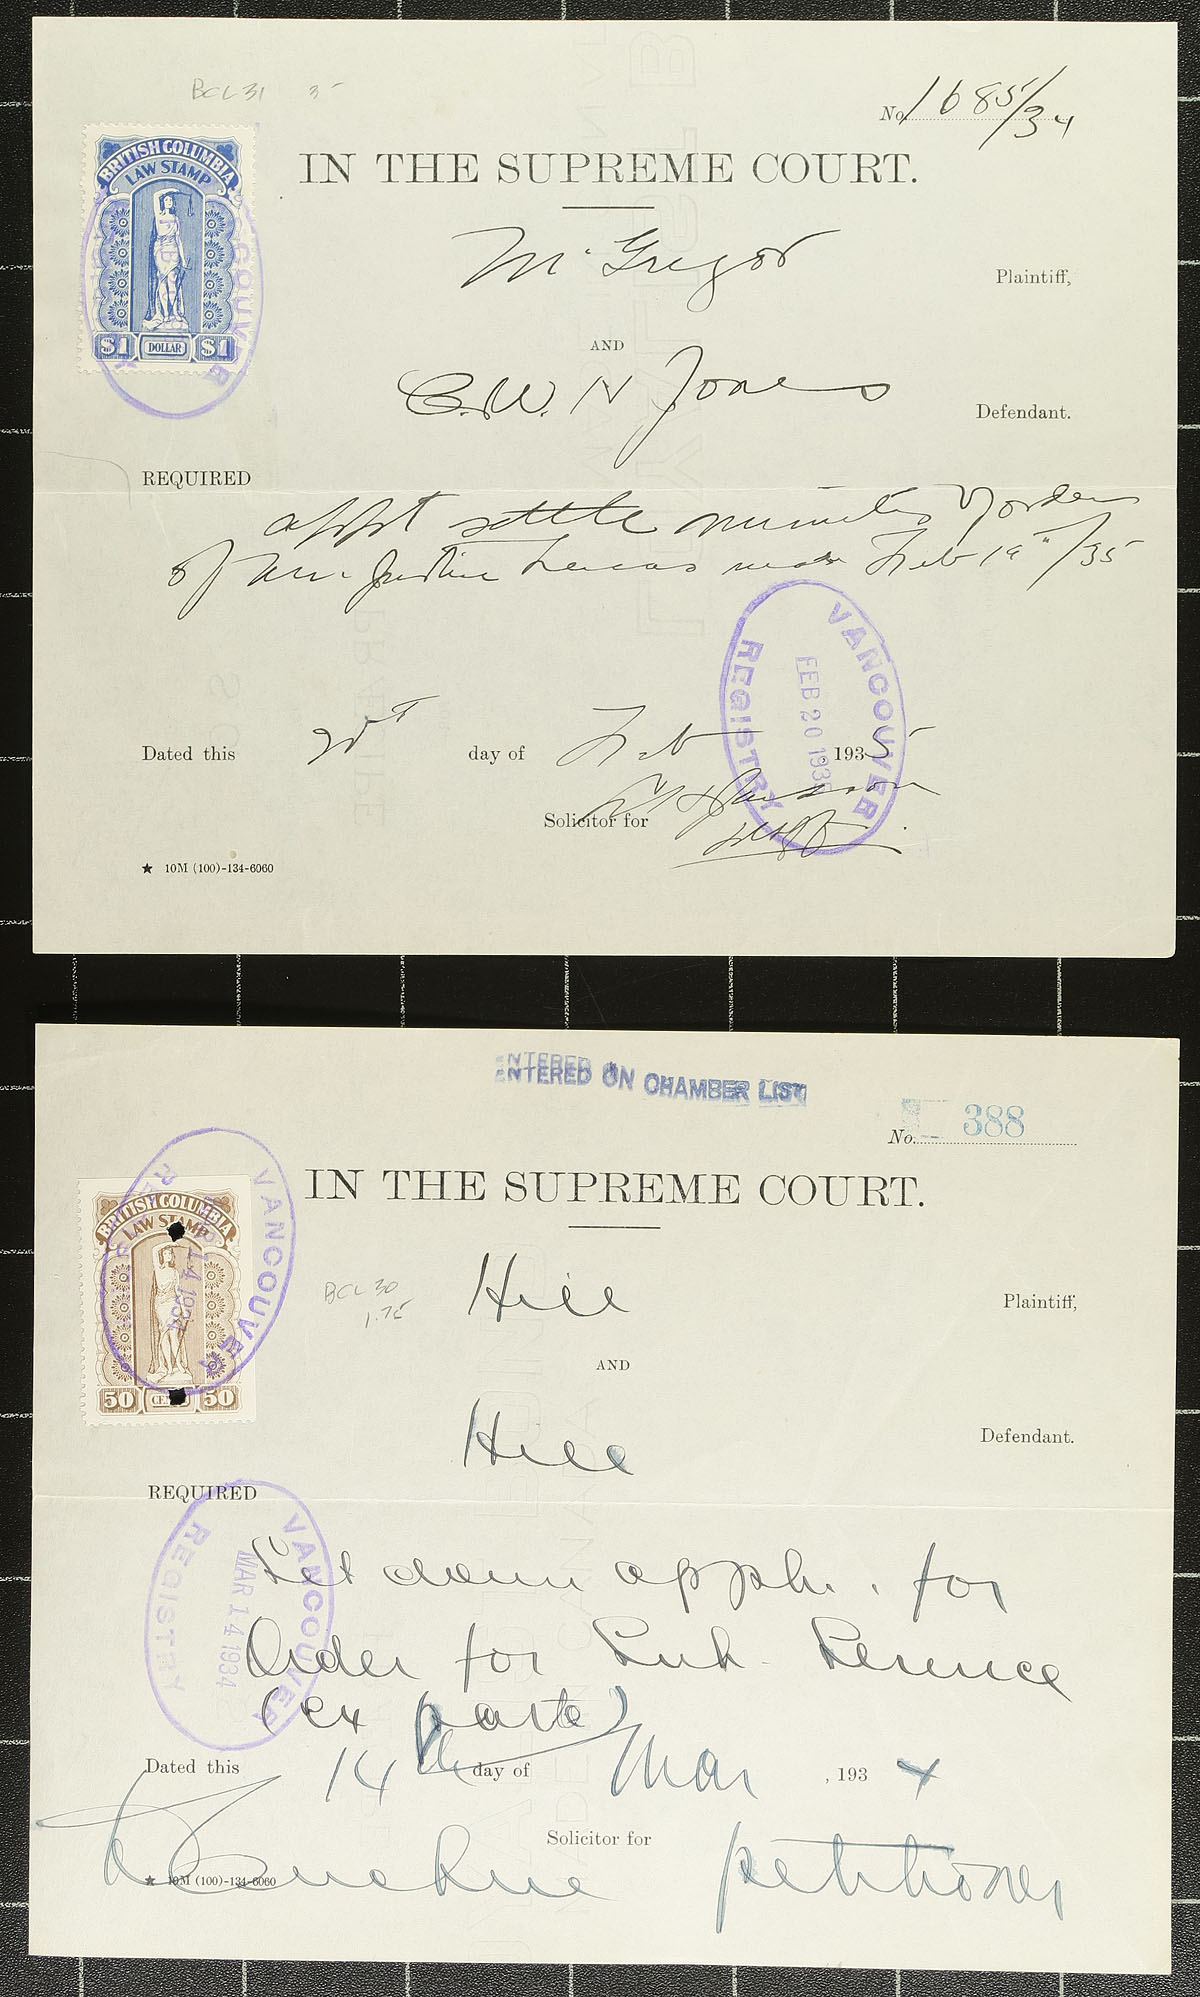 BCL31 35
No. 1685/34
BRITISH COLUMBIA
LAW STAMP
$1 DOLLAR $1
IN THE SUPREME COURT.
McGregor
Plaintiff,
AND
C.W. N Jones
Defendant.
REQUIRED
appt settle minutes of order
of Mr. Justice Lucas made Feb 19th/35
VANCOUVER
FEB 20 1935
REGISTRY
Dated this 20th day of Feb 1935
Solicitor for
★ 10M (100)-134-6060
ENTERED
ENTERED ON CHAMBER LIST
No. 388
BRITISH COLUMBIA
LAW STAMP
50 CENTS 50
VANCOUVER
14 1934
IN THE SUPREME COURT.
BCL30
1.75
Hill
Plaintiff,
AND
Hill
Defendant.
REQUIRED
VANCOUVER
MAR 14 1934
REGISTRY
Set down appln. for
Order for Sub. Service
(ex parte)
Dated this 14th day of Mar , 1934
Solicitor for petitioner
★ 10M (100)-134-6060